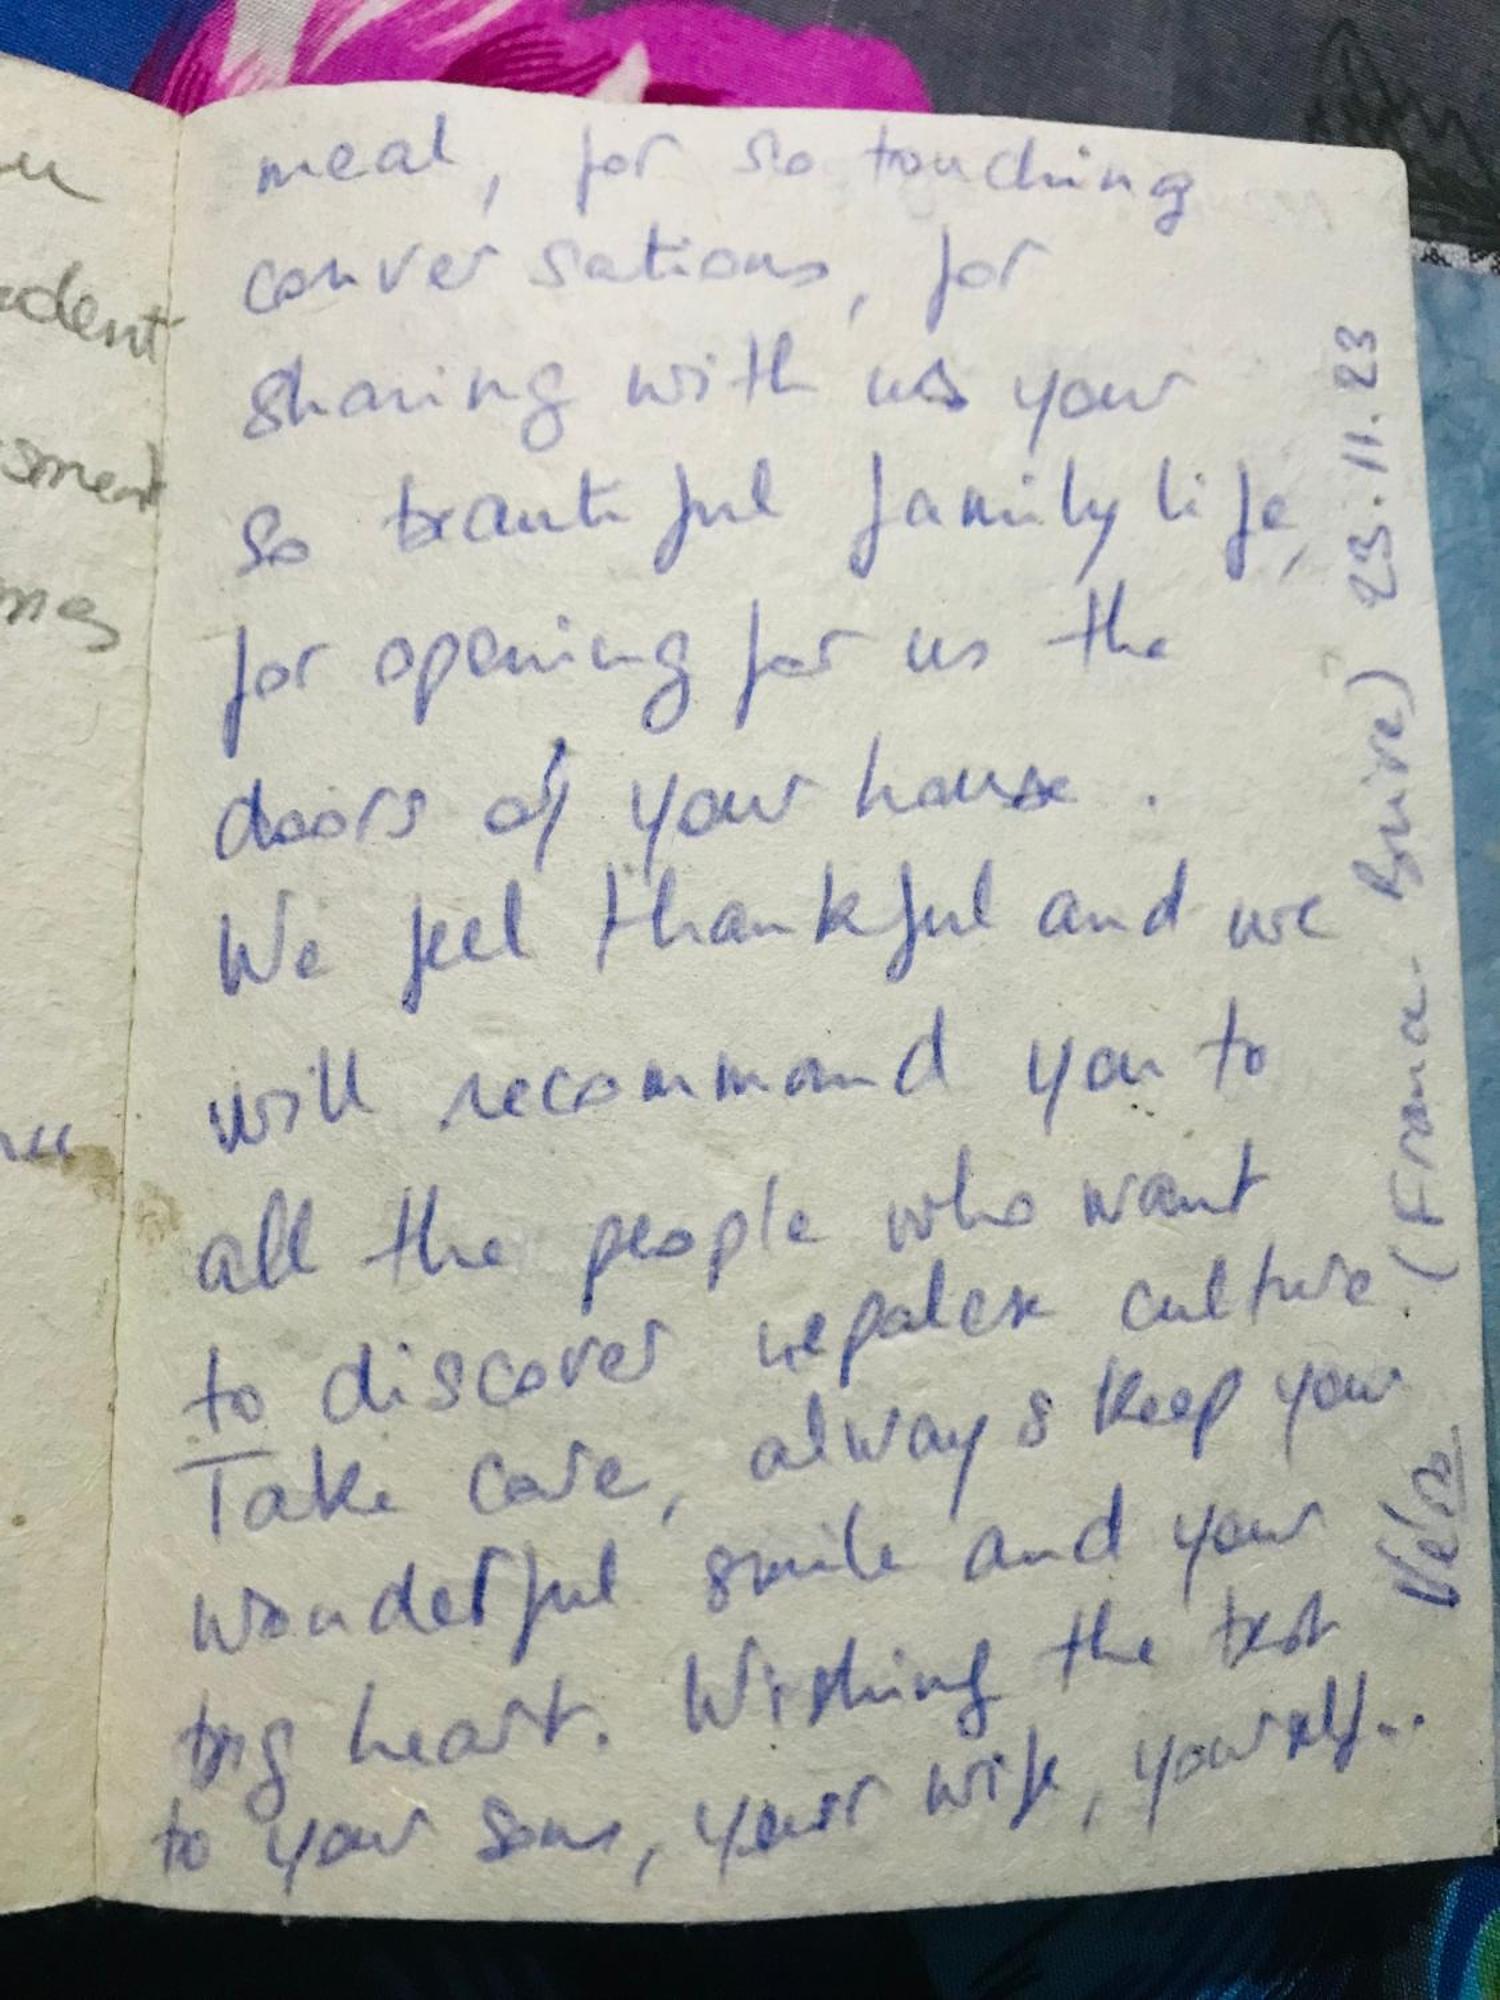 meal, for so touching
conversations, for
sharing with us your
so beautiful family life,
for opening for us the
doors of your house.
We feel thankful and we
will recommand you to
all the people who want
to discover nepalese culture.
Take care, always keep your
wonderful smile and your
big heart. Wishing the best
to your sons, your wife, yourself...
Véro
23.11.23
udent